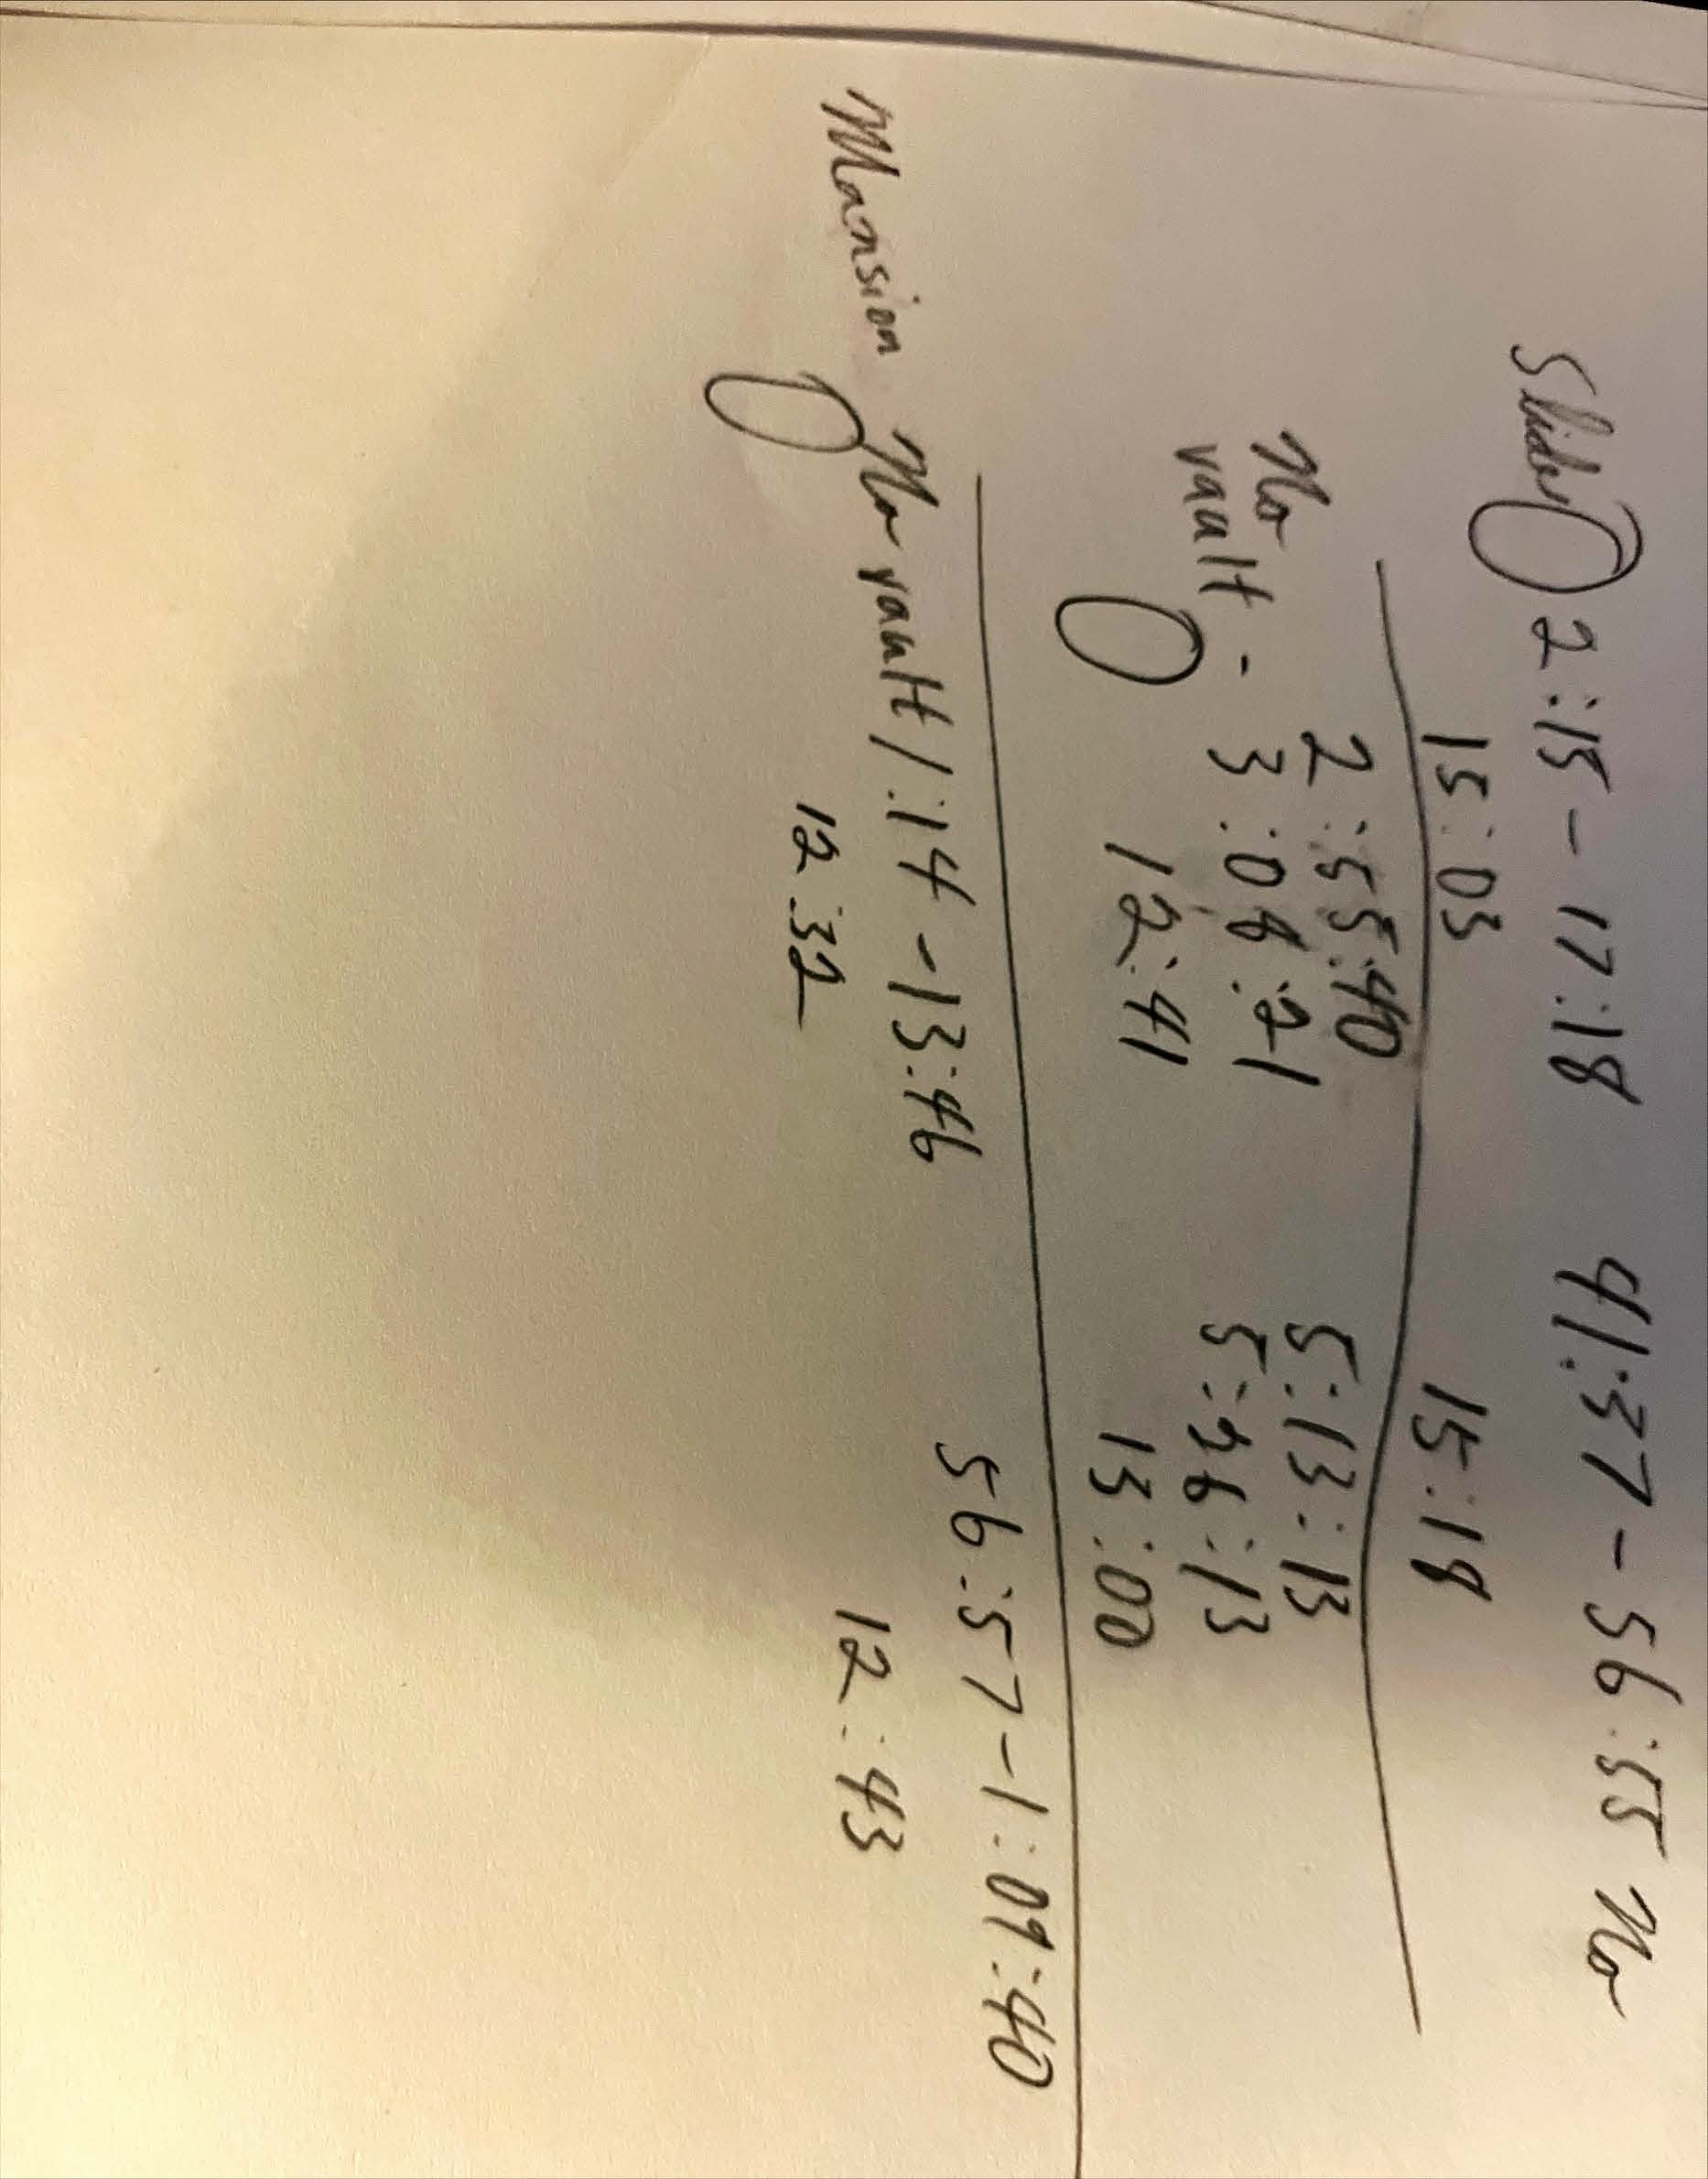 Slider 2:15 - 17:18 41:37 - 56:55 No
15:03 15:18
No 2:55:40 5:13:13
vault - 3:08:21 5:26:13
12:41 13:00
Mansion No vault 1:14 - 13:46 56:57 - 1:09:40
12:32 12:43